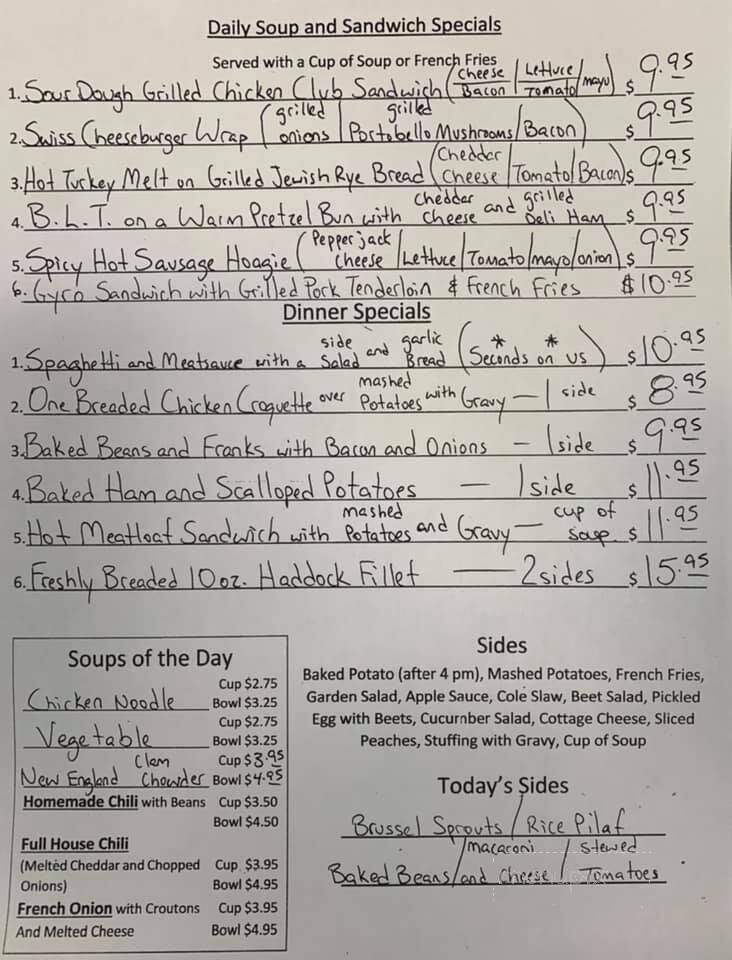 Daily Soup and Sandwich Specials
Served with a Cup of Soup or French Fries
1. Sour Dough Grilled Chicken Club Sandwich (Cheese/Bacon | Lettuce/Tomato / mayo) $ 9.95
2. Swiss Cheeseburger Wrap (grilled onions | grilled Portobello Mushrooms / Bacon) $ 9.95
3. Hot Turkey Melt on Grilled Jewish Rye Bread (Cheddar Cheese / Tomato / Bacon) $ 9.95
4. B.L.T. on a Warm Pretzel Bun with cheddar cheese and grilled Deli Ham $ 9.95
5. Spicy Hot Sausage Hoagie (Pepper jack cheese / Lettuce / Tomato / mayo / onion) $ 9.95
6. Gyro Sandwich with Grilled Pork Tenderloin & French Fries $10.95
Dinner Specials
1. Spaghetti and Meatsauce with a side Salad and garlic Bread (*Seconds on us*) $ 10.95
2. One Breaded Chicken Croquette over mashed Potatoes with Gravy — 1 side $ 8.95
3. Baked Beans and Franks with Bacon and Onions — 1 side $ 9.95
4. Baked Ham and Scalloped Potatoes — 1 side $ 11.95
5. Hot Meatloaf Sandwich with mashed Potatoes and Gravy — cup of soup $ 11.95
6. Freshly Breaded 10 oz. Haddock Fillet — 2 sides $ 15.95
Soups of the Day
Cup $2.75
Chicken Noodle Bowl $3.25
Cup $2.75
Vegetable Bowl $3.25
Clam Cup $3.95
New England Chowder Bowl $4.95
Homemade Chili with Beans Cup $3.50
Bowl $4.50
Full House Chili
(Melted Cheddar and Chopped Cup $3.95
Onions) Bowl $4.95
French Onion with Croutons Cup $3.95
And Melted Cheese Bowl $4.95
Sides
Baked Potato (after 4 pm), Mashed Potatoes, French Fries,
Garden Salad, Apple Sauce, Cole Slaw, Beet Salad, Pickled
Egg with Beets, Cucumber Salad, Cottage Cheese, Sliced
Peaches, Stuffing with Gravy, Cup of Soup
Today's Sides
Brussel Sprouts / Rice Pilaf
Baked Beans / macaroni and Cheese / Stewed Tomatoes